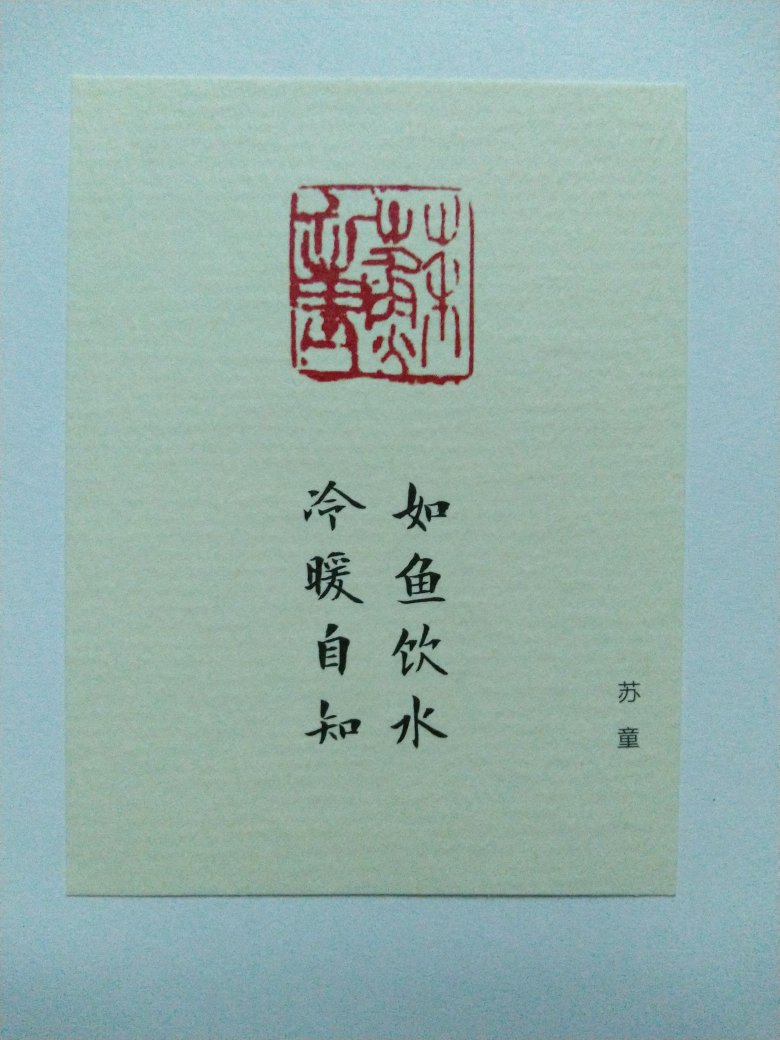 如鱼饮水
冷暖自知
苏童